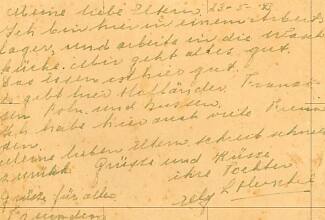 Meine liebe Eltern, 23-5-
Ich bin hier in einem Arbeits
lager, und arbeite in die Wasch
küche. Mir geht alles gut.
Das Essen ist hier gut.
gebt hier Holländer, Franzo
sen Poln. und Russen.
Ich habe hier auch viele Freun
den.
Meine lieben Eltern schreibt schnell
zurück. Grüsse und Küsse
ihre Tochter
Grüsse für alle
Freunden